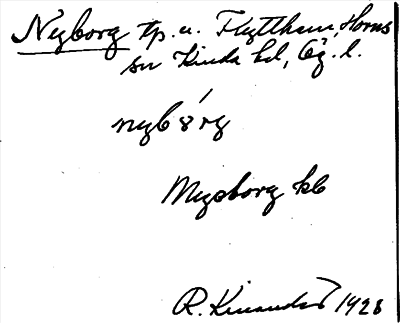 Nyborg tp. u. Flytthem, Horns
sn Kinda hd, Ög. l.
nyb8rg
Nysborg kb
R. Kinander 1928